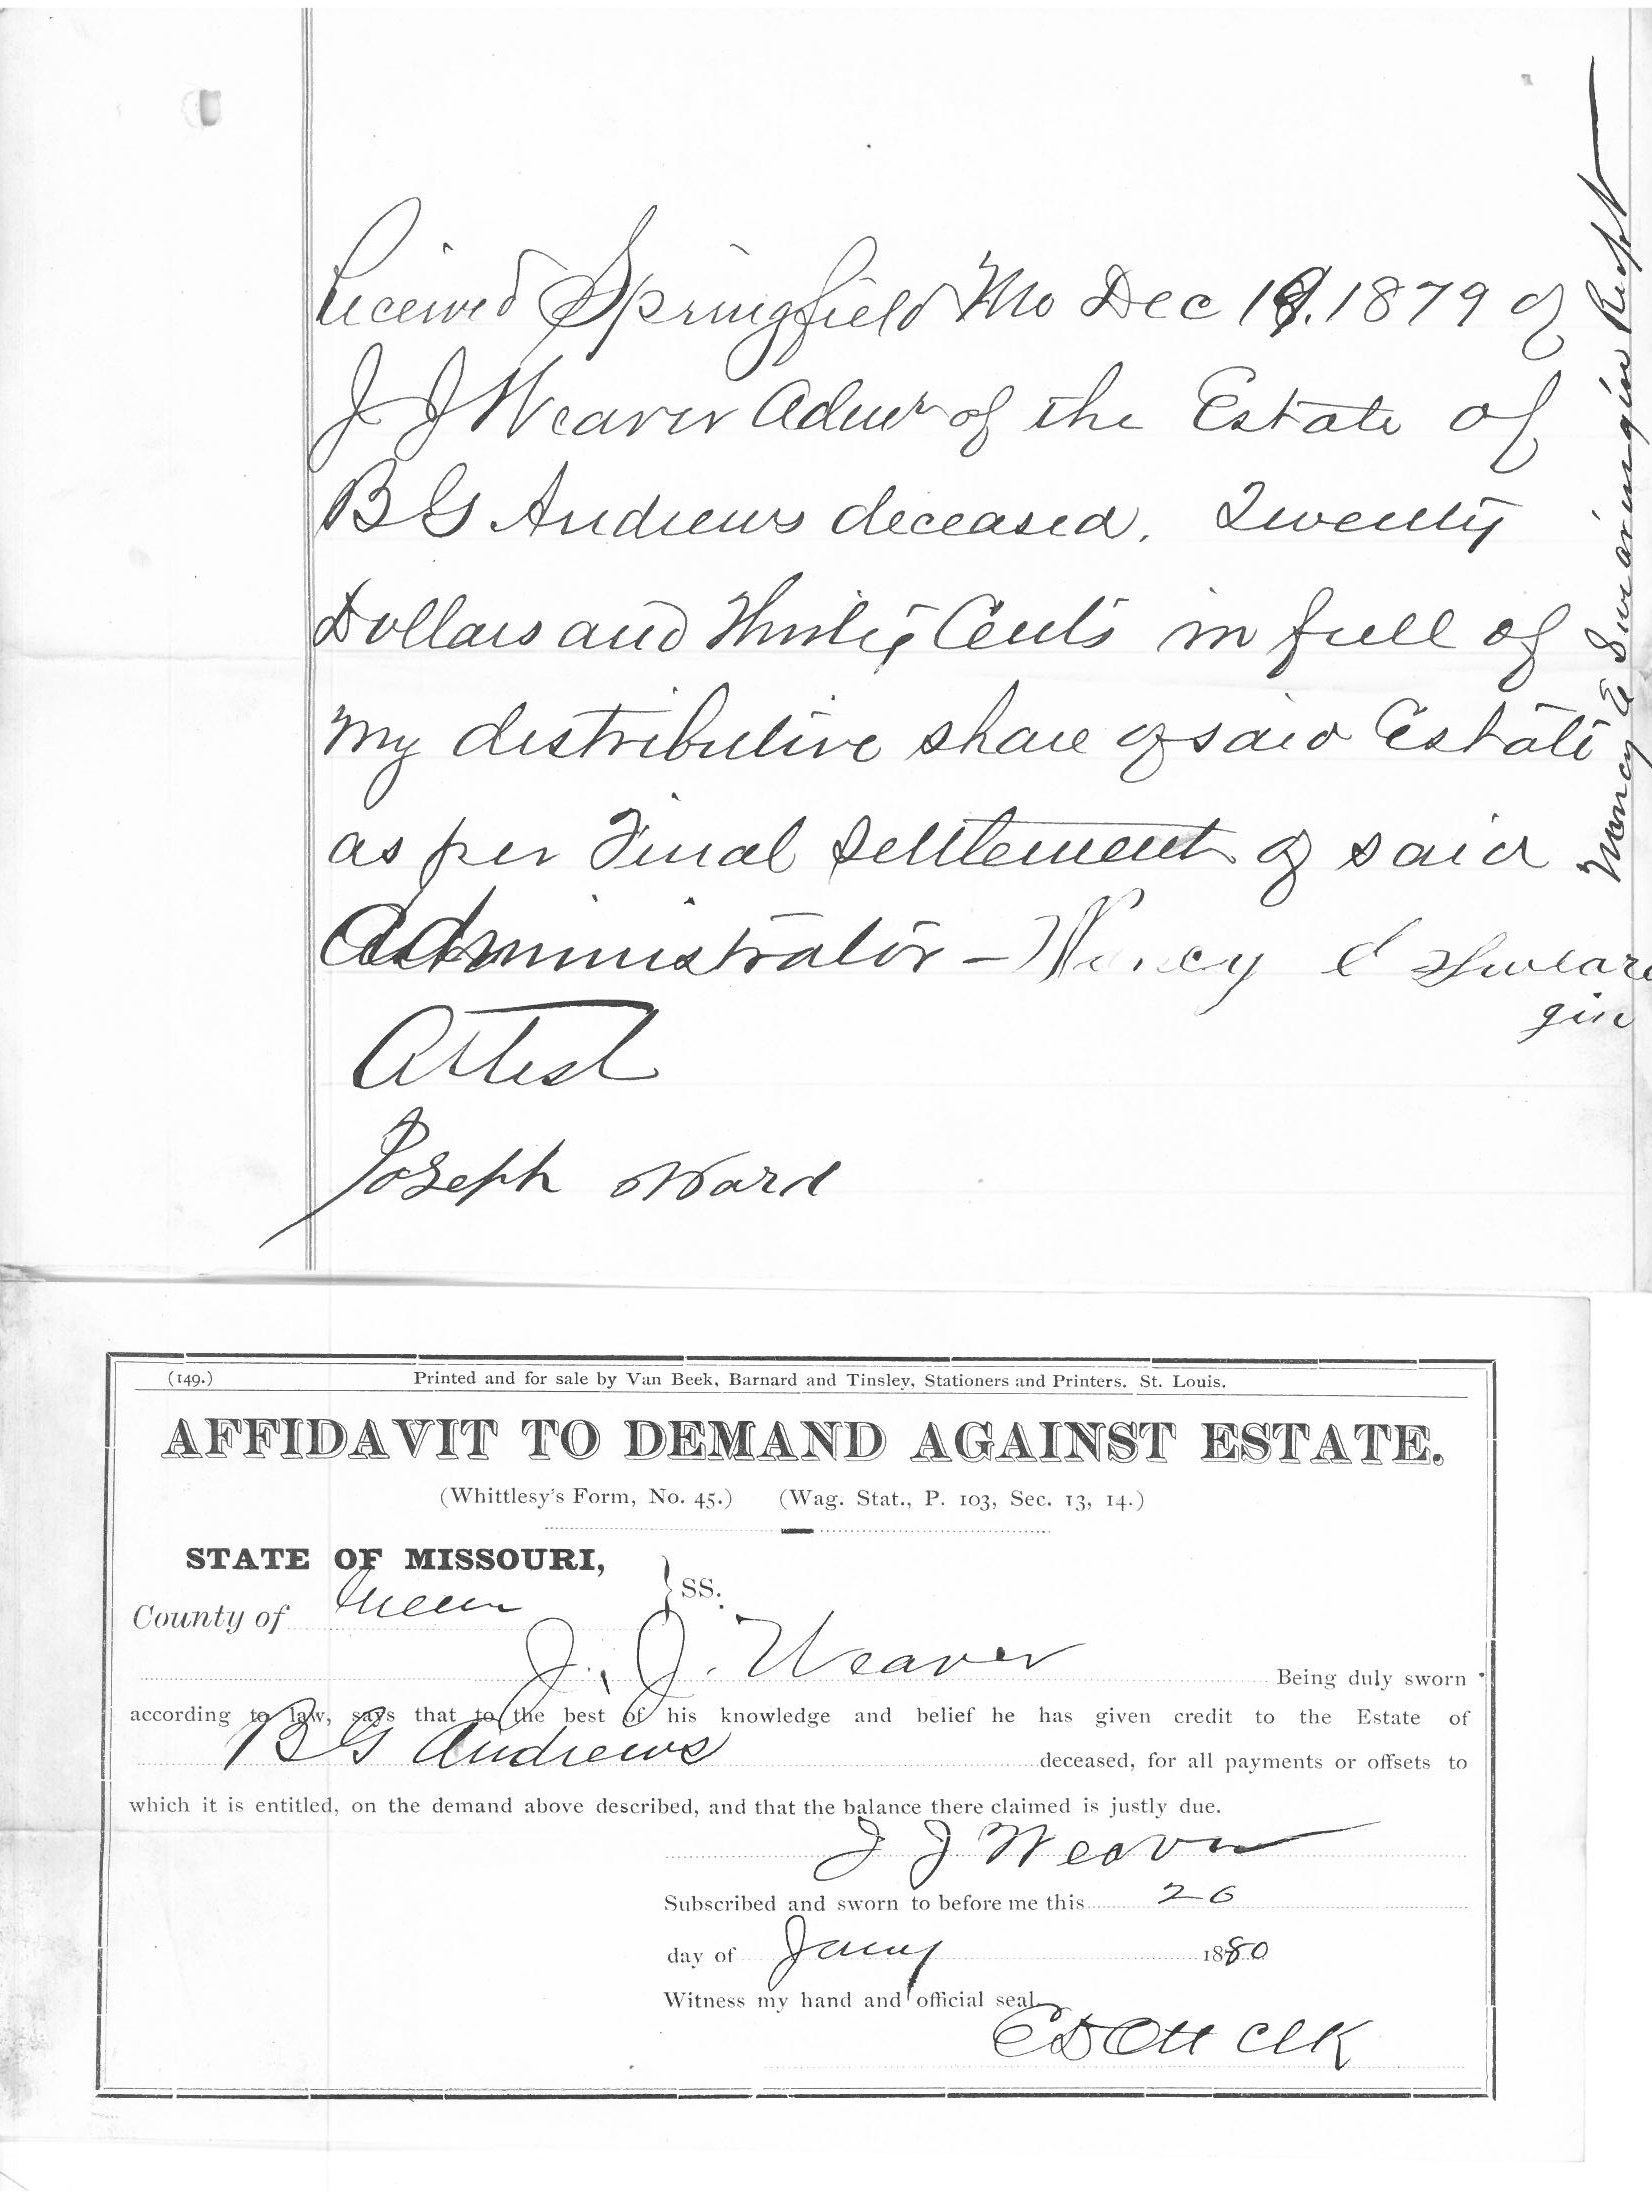 Received Springfield Mo Dec 19. 1879 of
J J Weaver Admr of the Estate of
B G Andrews deceased. Twenty
Dollars and Thirty Cents in full of
my distributive share of said Estate
as per Final Settlement of said
Administrator – Nancy E Sweare
gin
Attest
Joseph Ward
Nancy E Swearingin Rect
(149.) Printed and for sale by Van Beek, Barnard and Tinsley, Stationers and Printers. St. Louis.
AFFIDAVIT TO DEMAND AGAINST ESTATE.
(Whittlesy's Form, No. 45.) (Wag. Stat., P. 103, Sec. 13, 14.)
STATE OF MISSOURI,
County of Green } SS.
J. J. Weaver Being duly sworn
according to law, says that to the best of his knowledge and belief he has given credit to the Estate of
B G Andrews deceased, for all payments or offsets to
which it is entitled, on the demand above described, and that the balance there claimed is justly due.
J J Weaver
Subscribed and sworn to before me this 26
day of Jany 1880
Witness my hand and official seal
E D Ott Clk